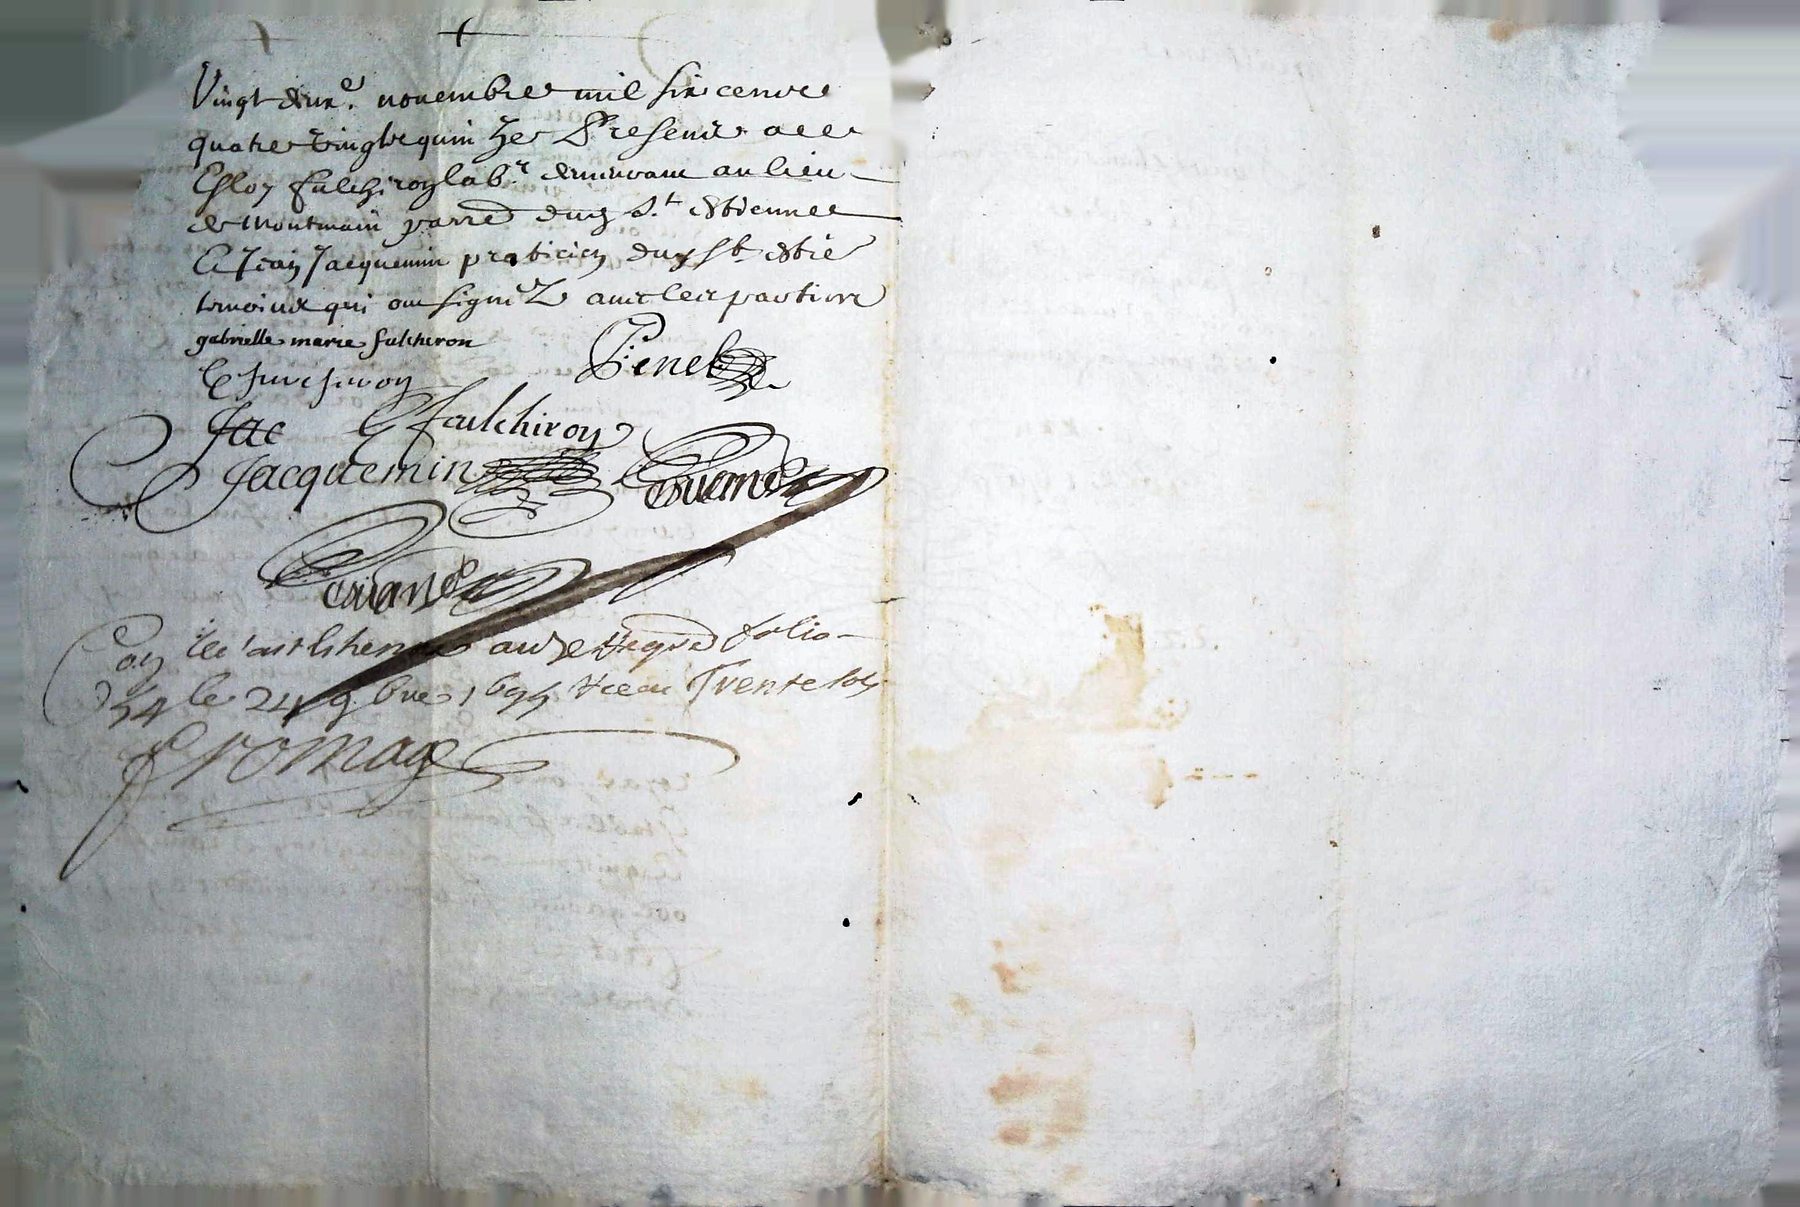 Vingt deux.e novembre mil six cents
quatre vingts quinze Presents a ce
Esloy fulchiron lab.r demeurant au lieu
de Montmain parr. dud S.t Estienne
Et Jean Jacquemin praticien dud St. Estie
temoins qui ont signéz avec les parties
gabrielle marie fulchiron
E fulchiron
Penet
Jac E fulchiron
Jacquemin
Con a St Estienne au regre folio
54 le 24 9bre 1695 Receu Trente sols
fromage